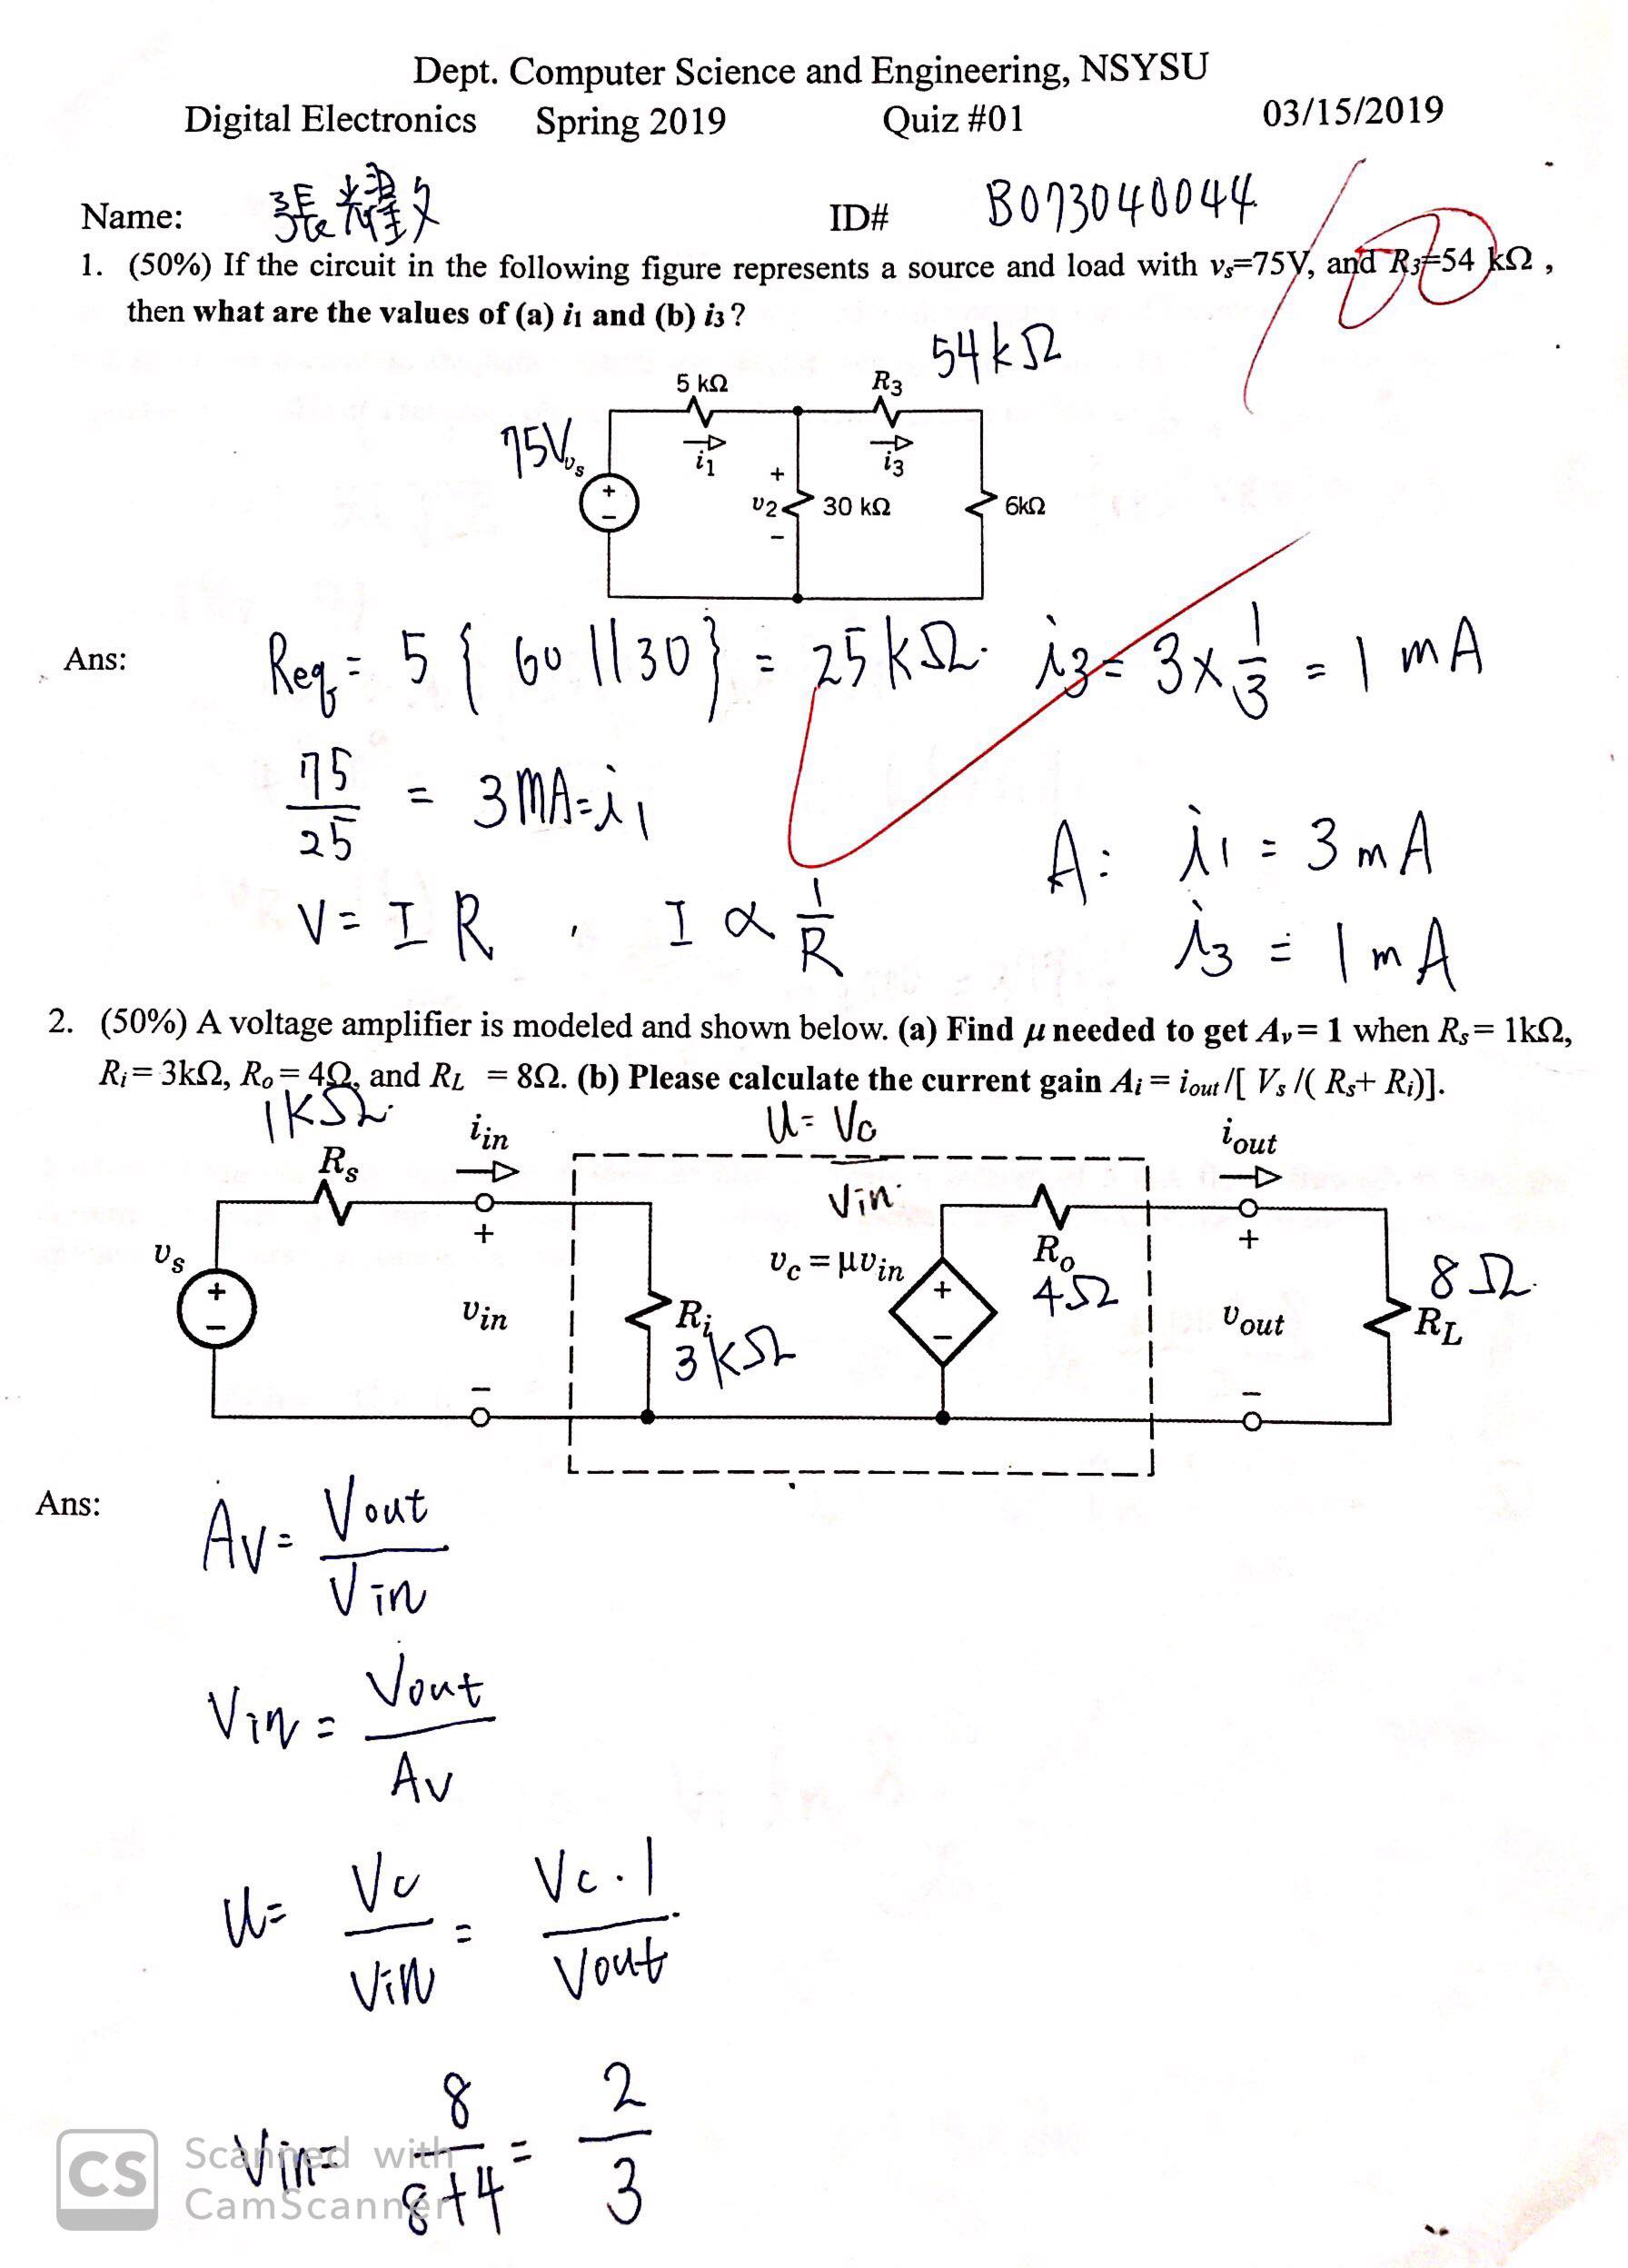 Dept. Computer Science and Engineering, NSYSU
Digital Electronics Spring 2019 Quiz #01 03/15/2019
Name: 張耀文 ID# B073040044
100
1. (50%) If the circuit in the following figure represents a source and load with vs=75V, and R3=54 kΩ ,
then what are the values of (a) i1 and (b) i3 ?
54kΩ
5 kΩ R3
75V
vs i1 i3
+ + v2 30 kΩ 6kΩ
− −
Ans: Req = 5 { 60 || 30 } = 25kΩ. i3 = 3 x 1/3 = 1 mA
75/25 = 3mA = i1
A: i1 = 3 mA
V = I R , I ∝ 1/R
i3 = 1 mA
2. (50%) A voltage amplifier is modeled and shown below. (a) Find μ needed to get Av = 1 when Rs = 1kΩ,
Ri = 3kΩ, Ro = 4Ω, and RL = 8Ω. (b) Please calculate the current gain Ai = iout /[ Vs /( Rs+ Ri)].
1kΩ iin U = Vc/Vin iout
Rs
+ +
vs vc = μvin Ro 8Ω
+ vin Ri + 4Ω vout RL
− 3kΩ −
− −
Ans: Av = Vout/Vin
Vin = Vout/Av
U = Vc/Vin = Vc.1/Vout
Vin = 8/8+4 = 2/3
CS Scanned with
CamScanner